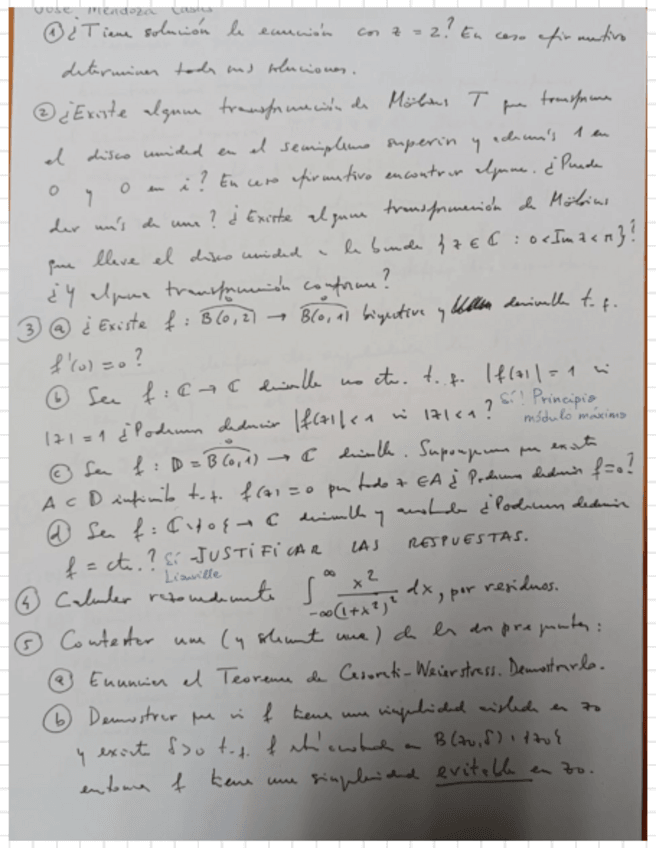 José Mendoza Casas
① ¿Tiene solución la ecuación cos z = 2? En caso afirmativo
determinar todas sus soluciones.
② ¿Existe alguna transformación de Möbius T que transforme
el disco unidad en el semiplano superior y además 1 en
0 y 0 en i? En caso afirmativo encontrar alguna. ¿Puede
dar más de una? ¿Existe alguna transformación de Möbius
que lleve el disco unidad a la banda {z ∈ ℂ : 0 < Im z < π}?
¿Y alguna transformación conforme?
③ ⓐ ¿Existe f : B(0,2) → B(0,1) biyectiva y derivable t.q.
f'(0) = 0?
ⓑ Sea f : ℂ → ℂ derivable no cte. t.q. |f(z)| = 1 si
|z| = 1 ¿Podemos deducir |f(z)| < 1 si |z| < 1? Sí! Principio
módulo máximo
ⓒ Sea f : D = B(0,1) → ℂ derivable. Supongamos que existe
A ⊂ D infinito t.q. f(z) = 0 para todo z ∈ A ¿Podemos deducir f = 0?
ⓓ Sea f : ℂ \ {0} → ℂ derivable y acotada ¿Podemos deducir
f = cte.? Sí - JUSTIFICAR LAS RESPUESTAS.
Liouville
④ Calcular razonadamente ∫_{-∞}^{∞} x²/(1+x²)² dx, por residuos.
⑤ Contestar una (y solamente una) de las dos preguntas:
ⓐ Enunciar el Teorema de Casorati-Weierstrass. Demostrarlo.
ⓑ Demostrar que si f tiene una singularidad aislada en z₀
y existe δ>0 t.q. f está acotada en B(z₀,δ) \ {z₀}
entonces f tiene una singularidad evitable en z₀.